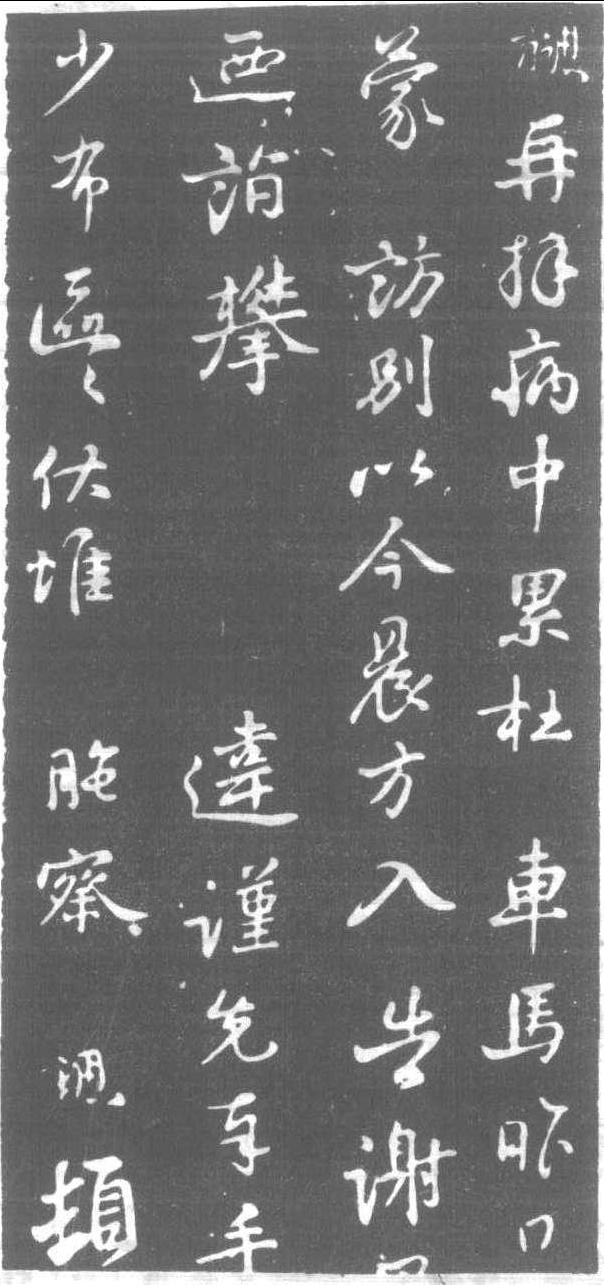 再拜病中累枉 車馬昨日
蒙 訪别以今晨方入 告謝
迺詣攀 違謹先奉手
少布區〻伏惟 照察 頓